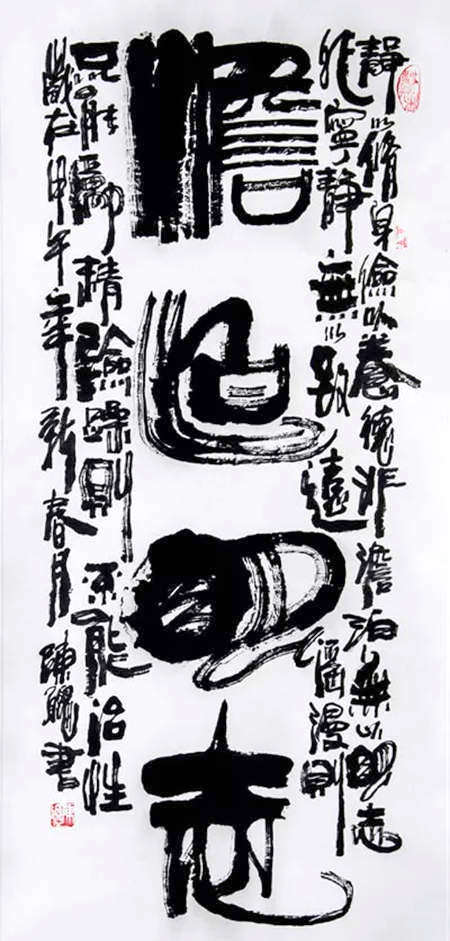 澹泊明志
靜以脩身儉以養德非澹泊無以明志
非寧靜無以致遠滛漫則
不能勵精險躁則不能治性
歲在甲午年新春月陳書